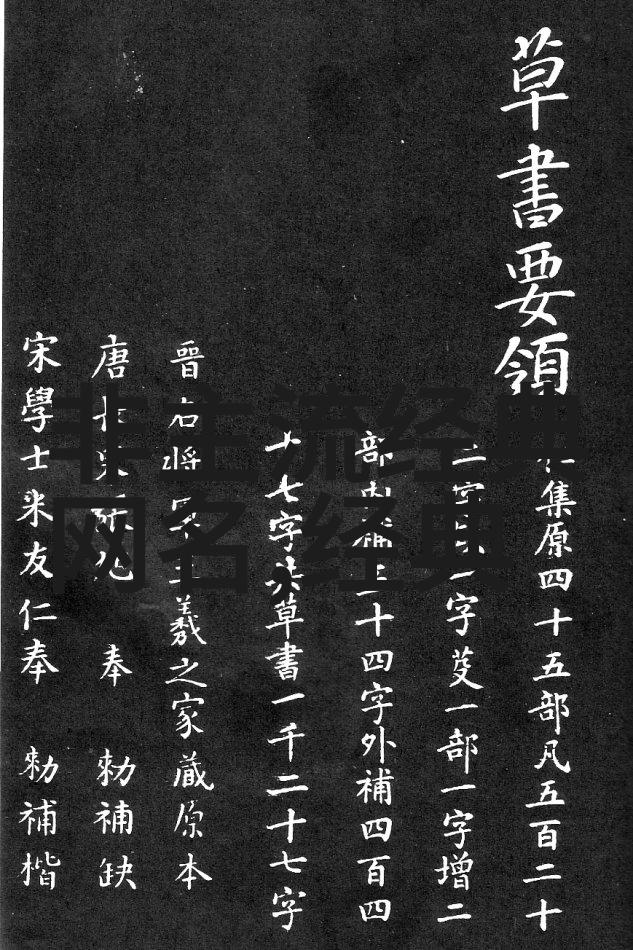 草書要領
集原四十五部凡五百二十
二字 一字芟一部一字增二
部内補三十四字外補四百四
十七字共草書一千二十七字
晉右將軍王羲之家蔵原本
唐長史孫 奉 勑補缺
宋學士米友仁奉 勑補楷
非主流经典
网名 经典